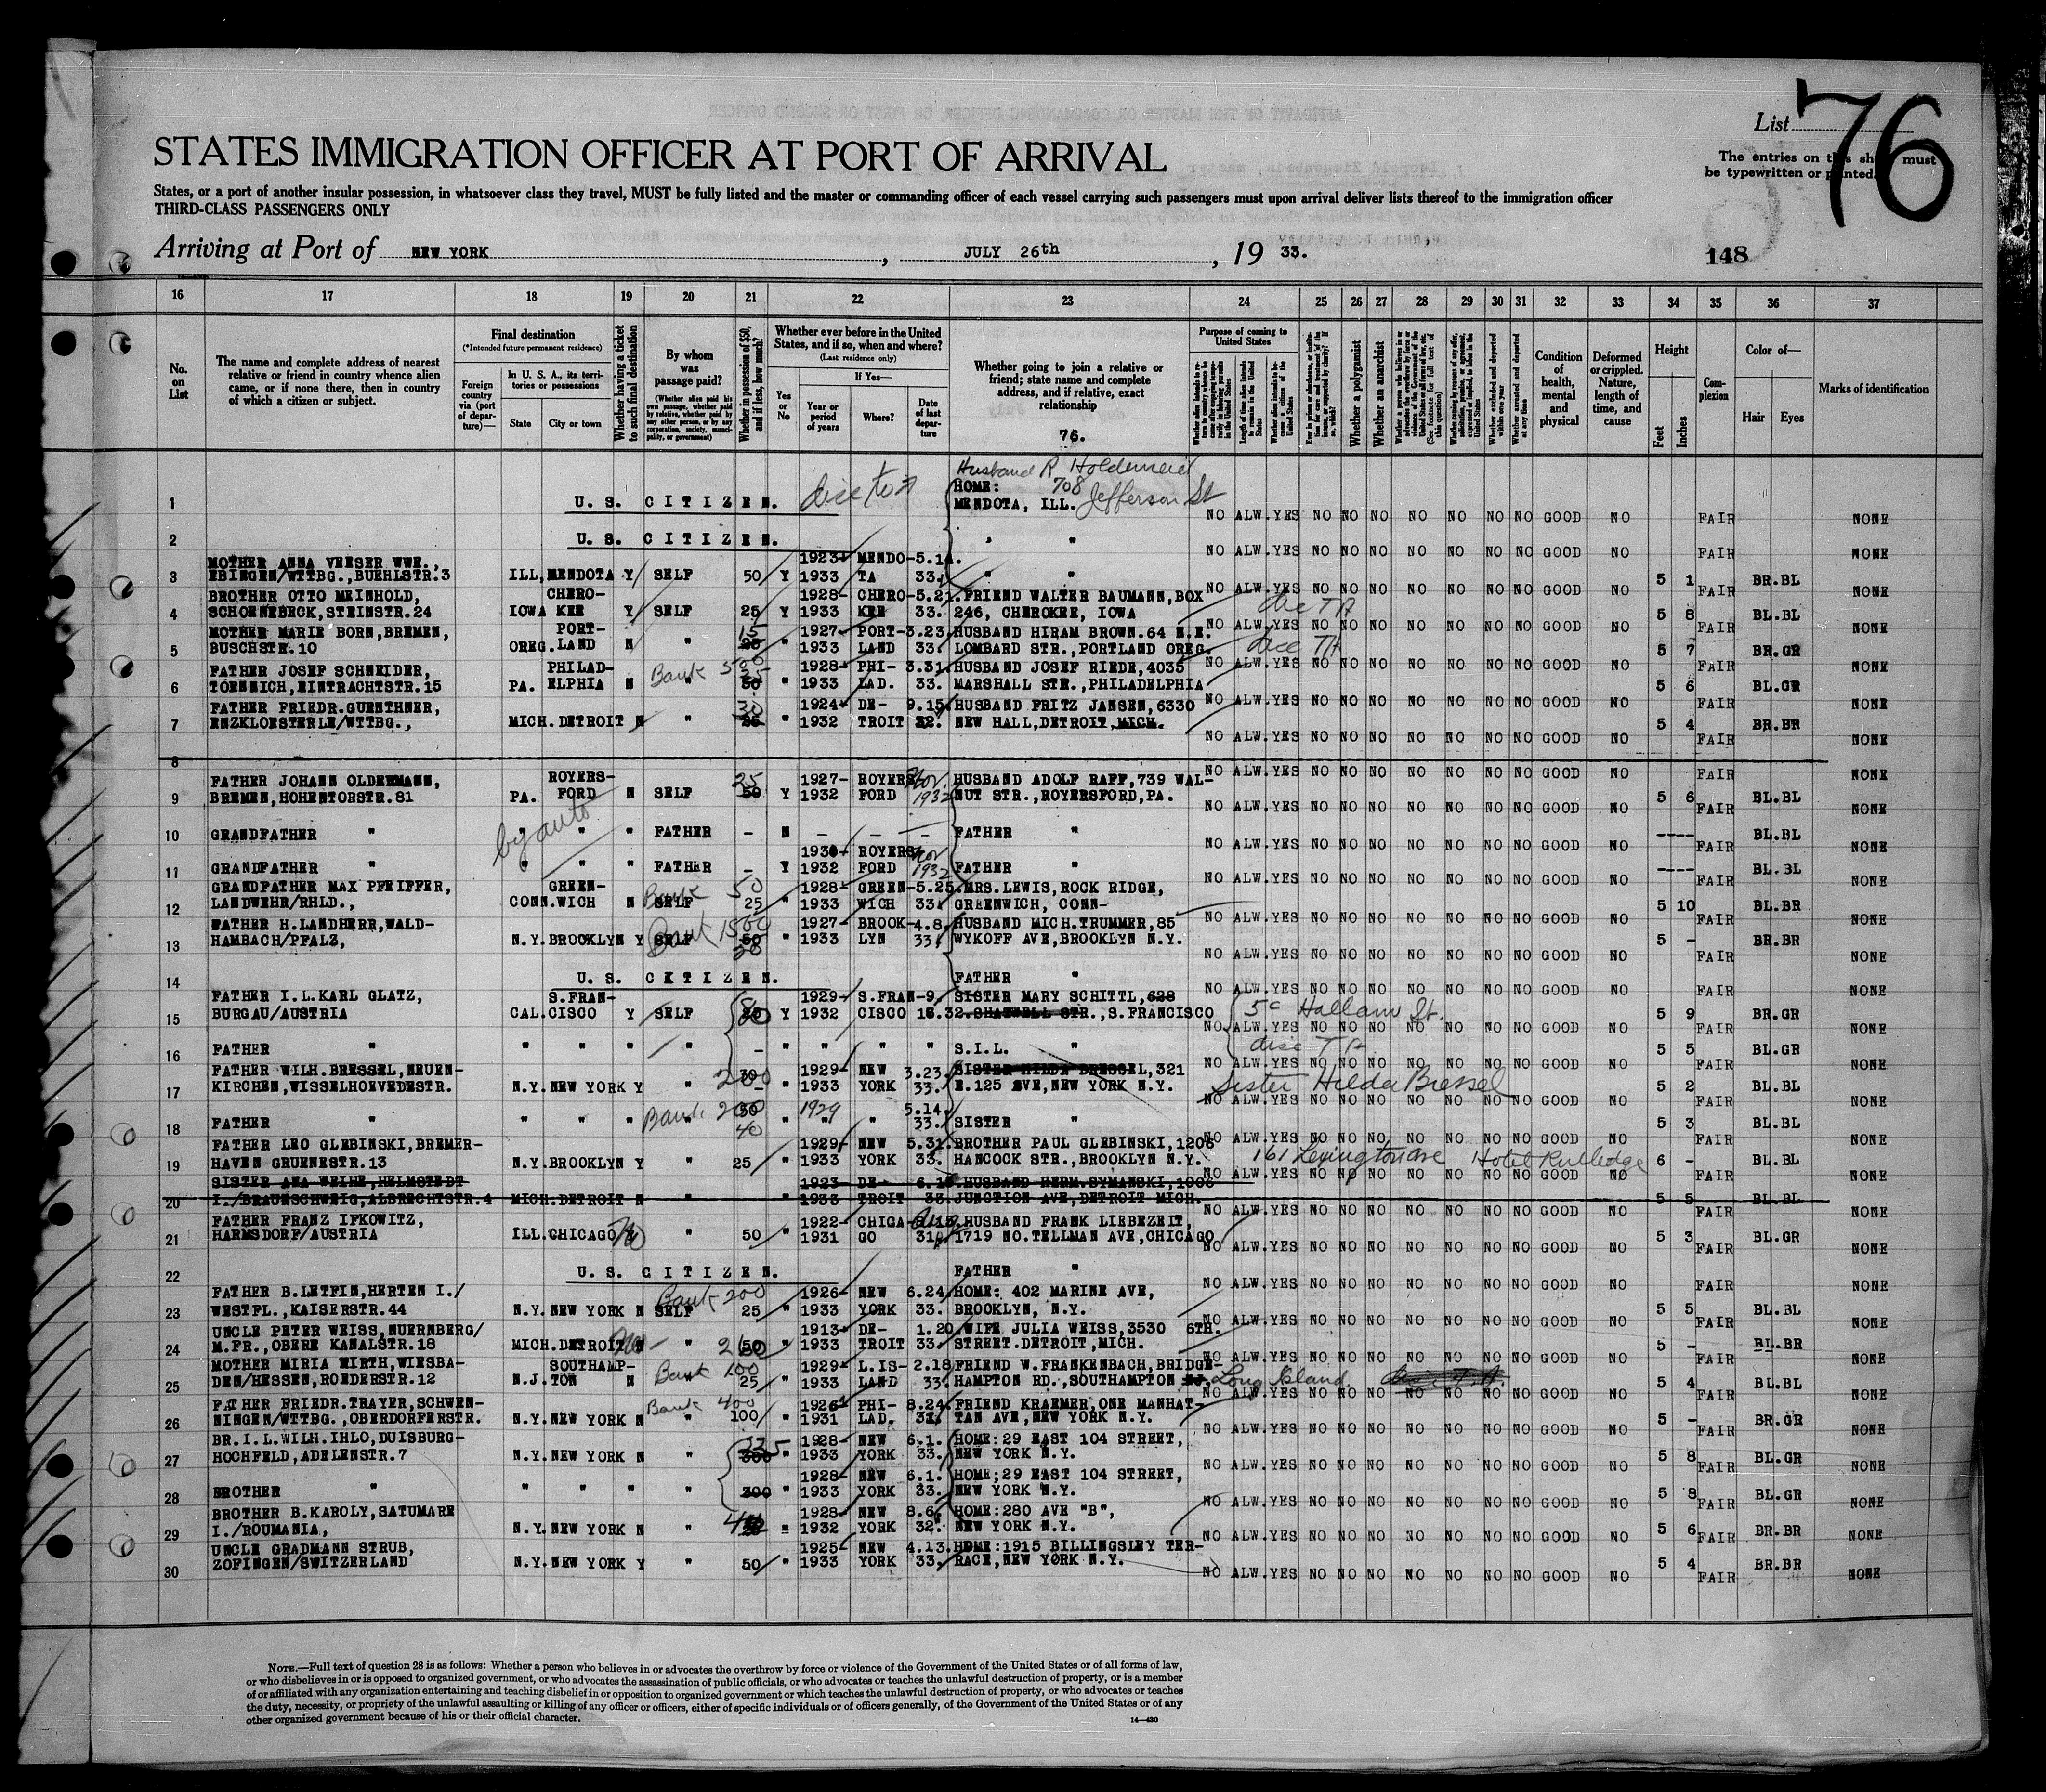 List 76
The entries on this sheet must
be typewritten or printed.
STATES IMMIGRATION OFFICER AT PORT OF ARRIVAL
States, or a port of another insular possession, in whatsoever class they travel, MUST be fully listed and the master or commanding officer of each vessel carrying such passengers must upon arrival deliver lists thereof to the immigration officer
THIRD-CLASS PASSENGERS ONLY
Arriving at Port of NEW YORK, JULY 26th, 19 33.
148
16 17 18 19 20 21 22 23 24 25 26 27 28 29 30 31 32 33 34 35 36 37
No. on List
The name and complete address of nearest relative or friend in country whence alien came, or if none there, then in country of which a citizen or subject.
Final destination
(*Intended future permanent residence)
Foreign country via (port of departure)—
In U. S. A., its territories or possessions
State City or town
Whether having a ticket to such final destination
By whom was passage paid?
(Whether alien paid his own passage, whether paid by relative, whether paid by any other person, or by any corporation, society, municipality, or government)
Whether in possession of $50, and if less, how much?
Whether ever before in the United States, and if so, when and where?
(Last residence only)
Yes or No
If Yes—
Year or period of years
Where?
Date of last departure
Whether going to join a relative or friend; state name and complete address, and if relative, exact relationship
76.
Purpose of coming to United States
Whether a polygamist
Whether an anarchist
Condition of health, mental and physical
Deformed or crippled. Nature, length of time, and cause
Height
Feet Inches
Complexion
Color of—
Hair Eyes
Marks of identification
Husband R Holdmeier
1 U. S. CITIZEN. HOME: 708 Jefferson St
MENDOTA, ILL. NO ALW. YES NO NO NO NO NO NO NO GOOD NO FAIR NONE
2 U. S. CITIZEN. " " NO ALW. YES NO NO NO NO NO NO NO GOOD NO FAIR NONE
MOTHER ANNA VEESER WWE., 1923- MENDO-5.14.
3 EBINGEN/WTTBG.,BUEHLSTR.3 ILL, MENDOTA Y SELF 50 Y 1933 TA 33. " " NO ALW. YES NO NO NO NO NO NO NO GOOD NO 5 1 FAIR BR.BL NONE
BROTHER OTTO MEINHOLD, CHERO- 1928- CHERO-5.21. FRIEND WALTER BAUMANN,BOX
4 SCHOENEBECK,STEINSTR.24 IOWA KEE Y SELF 25 Y 1933 KEE 33. 246, CHEROKEE, IOWA NO ALW. YES NO NO NO NO NO NO NO GOOD NO 5 8 FAIR BL.BL NONE
MOTHER MARIE BORN,BREMEN, PORT- 15 1927- PORT-3.23. HUSBAND HIRAM BROWN.64 N.E.
5 BUSCHSTR.10 OREG. LAND N " " 1933 LAND 33. LOMBARD STR.,PORTLAND OREG. NO ALW. YES NO NO NO NO NO NO NO GOOD NO 5 7 FAIR BR.GR NONE
FATHER JOSEF SCHNEIDER, PHILAD- Bank 1928- PHI- 3.31. HUSBAND JOSEF RIEDE,4035
6 TOENNICH,EINTRACHTSTR.15 PA. ELPHIA N 50 " 1933 LAD. 33. MARSHALL STR.,PHILADELPHIA NO ALW. YES NO NO NO NO NO NO NO GOOD NO 5 6 FAIR BL.GR NONE
FATHER FRIEDR.GUENTHNER, 30 1924- DE- 9.15. HUSBAND FRITZ JANSEN,6330
7 ENZKLOESTERLE/WTTBG., MICH. DETROIT N " 25 " 1932 TROIT 32. NEW HALL,DETROIT,MICH. NO ALW. YES NO NO NO NO NO NO NO GOOD NO 5 4 FAIR BR.BR NONE
8 NO ALW. YES NO NO NO NO NO NO NO GOOD NO FAIR NONE
FATHER JOHANN OLDERMANN, ROYERS- 25 1927- ROYERS- Nov. HUSBAND ADOLF RAFF,739 WAL-
9 BREMEN,HOHENTORSTR.81 PA. FORD N SELF 50 Y 1932 FORD 1932 NUT STR.,ROYERSFORD,PA. NO ALW. YES NO NO NO NO NO NO NO GOOD NO 5 6 FAIR BL.BL NONE
by auto
10 GRANDFATHER " " " " FATHER - N - - - FATHER " NO ALW. YES NO NO NO NO NO NO NO GOOD NO ---- FAIR BL.BL NONE
1930- ROYERS- Nov
11 GRANDFATHER " " " " FATHER - Y 1932 FORD 1932 FATHER " NO ALW. YES NO NO NO NO NO NO NO GOOD NO ---- FAIR BL.BL NONE
GRANDFATHER MAX PFEIFFER, GREEN- Bank 50 1928- GREEN-5.25. MRS.LEWIS,ROCK RIDGE,
12 LANDWEHR/RHLD., CONN. WICH N SELF 25 " 1933 WICH 33. GREENWICH, CONN- NO ALW. YES NO NO NO NO NO NO NO GOOD NO 5 10 FAIR BL.BR NONE
FATHER H.LANDHERR,WALD- Bank 1500 1927- BROOK-4.8. HUSBAND MICH.TRUMMER,85
13 HAMBACH/PFALZ, N.Y. BROOKLYN Y SELF 50 " 1933 LYN 33. WYKOFF AVE,BROOKLYN N.Y. NO ALW. YES NO NO NO NO NO NO NO GOOD NO 5 - FAIR BR.BR NONE
14 U. S. CITIZEN. FATHER " NO ALW. YES NO NO NO NO NO NO NO GOOD NO FAIR NONE
FATHER I.L.KARL GLATZ, S.FRAN- 1929- S.FRAN-9. SISTER MARY SCHITTL,628
15 BURGAU/AUSTRIA CAL. CISCO Y SELF 80 Y 1932 CISCO 16.32. SHAGWELL STR.,S.FRANCISCO Hallam St. NO ALW. YES NO NO NO NO NO NO NO GOOD NO 5 9 FAIR BR.GR NONE
16 FATHER " " " " " - " " " " S.I.L. " NO ALW. YES NO NO NO NO NO NO NO GOOD NO 5 5 FAIR BL.GR NONE
FATHER WILH.BRESSEL,NEUEN- 1929- NEW 3.23. SISTER HILDA BRESSEL,321
17 KIRCHEN,WISSELHOEVEDESTR. N.Y. NEW YORK Y " 200 " 1933 YORK 33. E.125 AVE,NEW YORK N.Y. Sister Hilda Bressel NO ALW. YES NO NO NO NO NO NO NO GOOD NO 5 2 FAIR BL.BL NONE
Bank 200 1929 5.14.
18 FATHER " " " " " 40 " " " 33. SISTER NO ALW. YES NO NO NO NO NO NO NO GOOD NO 5 3 FAIR BL.BL NONE
FATHER LEO GLEBINSKI,BREMER- 1929- NEW 5.31. BROTHER PAUL GLEBINSKI,1206
19 HAVEN GRUENESTR.13 N.Y. BROOKLYN Y " 25 " 1933 YORK 33. HANCOCK STR.,BROOKLYN N.Y. 161 Lexington ave Hotel Rutledge NO ALW. YES NO NO NO NO NO NO NO GOOD NO 6 - FAIR BL.BL NONE
SISTER ANA WEIHE,HELMSTEDT 1923- DE- 6.1 HUSBAND HERM.SYMANSKI,1906
20 I./BRAUNSCHWEIG,ALBRECHTSTR.4 MICH. DETROIT N 1933 TROIT 33. JUNCTION AVE,DETROIT MICH. NO ALW. YES NO NO NO NO NO NO NO GOOD NO 5 5 FAIR BL.BL NONE
FATHER FRANZ IFKOWITZ, 1922- CHIGA- HUSBAND FRANK LIEBEZEIT,
21 HARMSDORF/AUSTRIA ILL. CHICAGO " 50 " 1931 GO 31. 1719 NO.TELLMAN AVE,CHICAGO NO ALW. YES NO NO NO NO NO NO NO GOOD NO 5 3 FAIR BL.GR NONE
22 U. S. CITIZEN. FATHER " NO ALW. YES NO NO NO NO NO NO NO GOOD NO FAIR NONE
FATHER B.LETFIN,HERTEN I./ Bank 200 1926- NEW 6.24. HOME: 402 MARINE AVE,
23 WESTFL.,KAISERSTR.44 N.Y. NEW YORK N SELF 25 " 1933 YORK 33. BROOKLYN, N.Y. NO ALW. YES NO NO NO NO NO NO NO GOOD NO 5 5 FAIR BL.BL NONE
UNCLE PETER WEISS,NUERNBERG/ 1913- DE- 1.20. WIFE JULIA WEISS,3530 6TH.
24 M.FR.,OBERE KANALSTR.18 MICH. DETROIT N " " 1933 TROIT 33. STREET.DETROIT,MICH. NO ALW. YES NO NO NO NO NO NO NO GOOD NO 5 - FAIR BL.BR NONE
MOTHER MIRIA WIRTH,WIESBA- SOUTHAMP- Bank 100 1929- L.IS- 2.18. FRIEND W.FRANKENBACH,BRIDGE-
25 DEN/HESSEN,ROEDERSTR.12 N.J. TON N 25 " 1933 LAND 33. HAMPTON RD.,SOUTHAMPTON Long Island. NO ALW. YES NO NO NO NO NO NO NO GOOD NO 5 4 FAIR BL.BL NONE
FATHER FRIEDR.TRAYER,SCHWEN- Bank 400 1926- PHI- 8.24. FRIEND KRAEMER,ONE MANHAT-
26 NINGEN/WTTBG.,OBERDORFERSTR. N.Y. NEW YORK N " 100 " 1931 LAD. 31. TAN AVE,NEW YORK N.Y. NO ALW. YES NO NO NO NO NO NO NO GOOD NO 5 - FAIR BR.GR NONE
BR.I.L.WILH.IHLO,DUISBURG- 335 1928- NEW 6.1. HOME:29 EAST 104 STREET,
27 HOCHFELD,ADELENSTR.7 N.Y. NEW YORK N " 300 " 1933 YORK 33. NEW YORK N.Y. NO ALW. YES NO NO NO NO NO NO NO GOOD NO 5 8 FAIR BL.GR NONE
1928- NEW 6.1. HOME;29 EAST 104 STREET,
28 BROTHER " " " " " 300 " 1933 YORK 33. NEW YORK N.Y. NO ALW. YES NO NO NO NO NO NO NO GOOD NO 5 8 FAIR BL.GR NONE
BROTHER B.KAROLY,SATUMARE 1928- NEW 8.6. HOME:280 AVE "B",
29 I./ROUMANIA, N.Y. NEW YORK N " " 1932 YORK 32. NEW YORK N.Y. NO ALW. YES NO NO NO NO NO NO NO GOOD NO 5 6 FAIR BR.BR NONE
UNCLE GRADMANN STRUB, 1925- NEW 4.13. HOME:1915 BILLINGSLEY TER-
30 ZOFINGEN/SWITZERLAND N.Y. NEW YORK Y " 50 " 1933 YORK 33. RACE,NEW YORK N.Y. NO ALW. YES NO NO NO NO NO NO NO GOOD NO 5 4 FAIR BR.BR NONE
NOTE.—Full text of question 28 is as follows: Whether a person who believes in or advocates the overthrow by force or violence of the Government of the United States or of all forms of law,
or who disbelieves in or is opposed to organized government, or who advocates the assassination of public officials, or who advocates or teaches the unlawful destruction of property, or is a member
of or affiliated with any organization entertaining and teaching disbelief in or opposition to organized government or which teaches the unlawful destruction of property, or who advocates or teaches
the duty, necessity, or propriety of the unlawful assaulting or killing of any officer or officers, either of specific individuals or of officers generally, of the Government of the United States or of any
other organized government because of his or their official character.
14—430